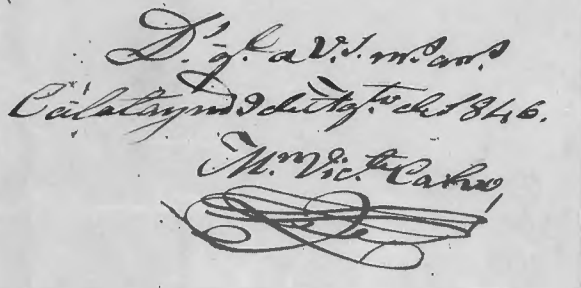 D.s g.e a V.S. m.s an.s
Calatayud 9 de Ag.to de 1846.
M.n Vic.te Calvo